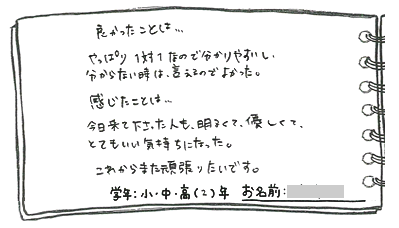 良かったことは…
やっぱり1対1なので分かりやすいし
分からない時は、言えるのでよかった。
感じたことは…
今日来て下さった人も、明るくて、優しくて、
とてもいい気持ちになった。
これからまた頑張りたいです。
学年:小・中・高(2)年 お名前: